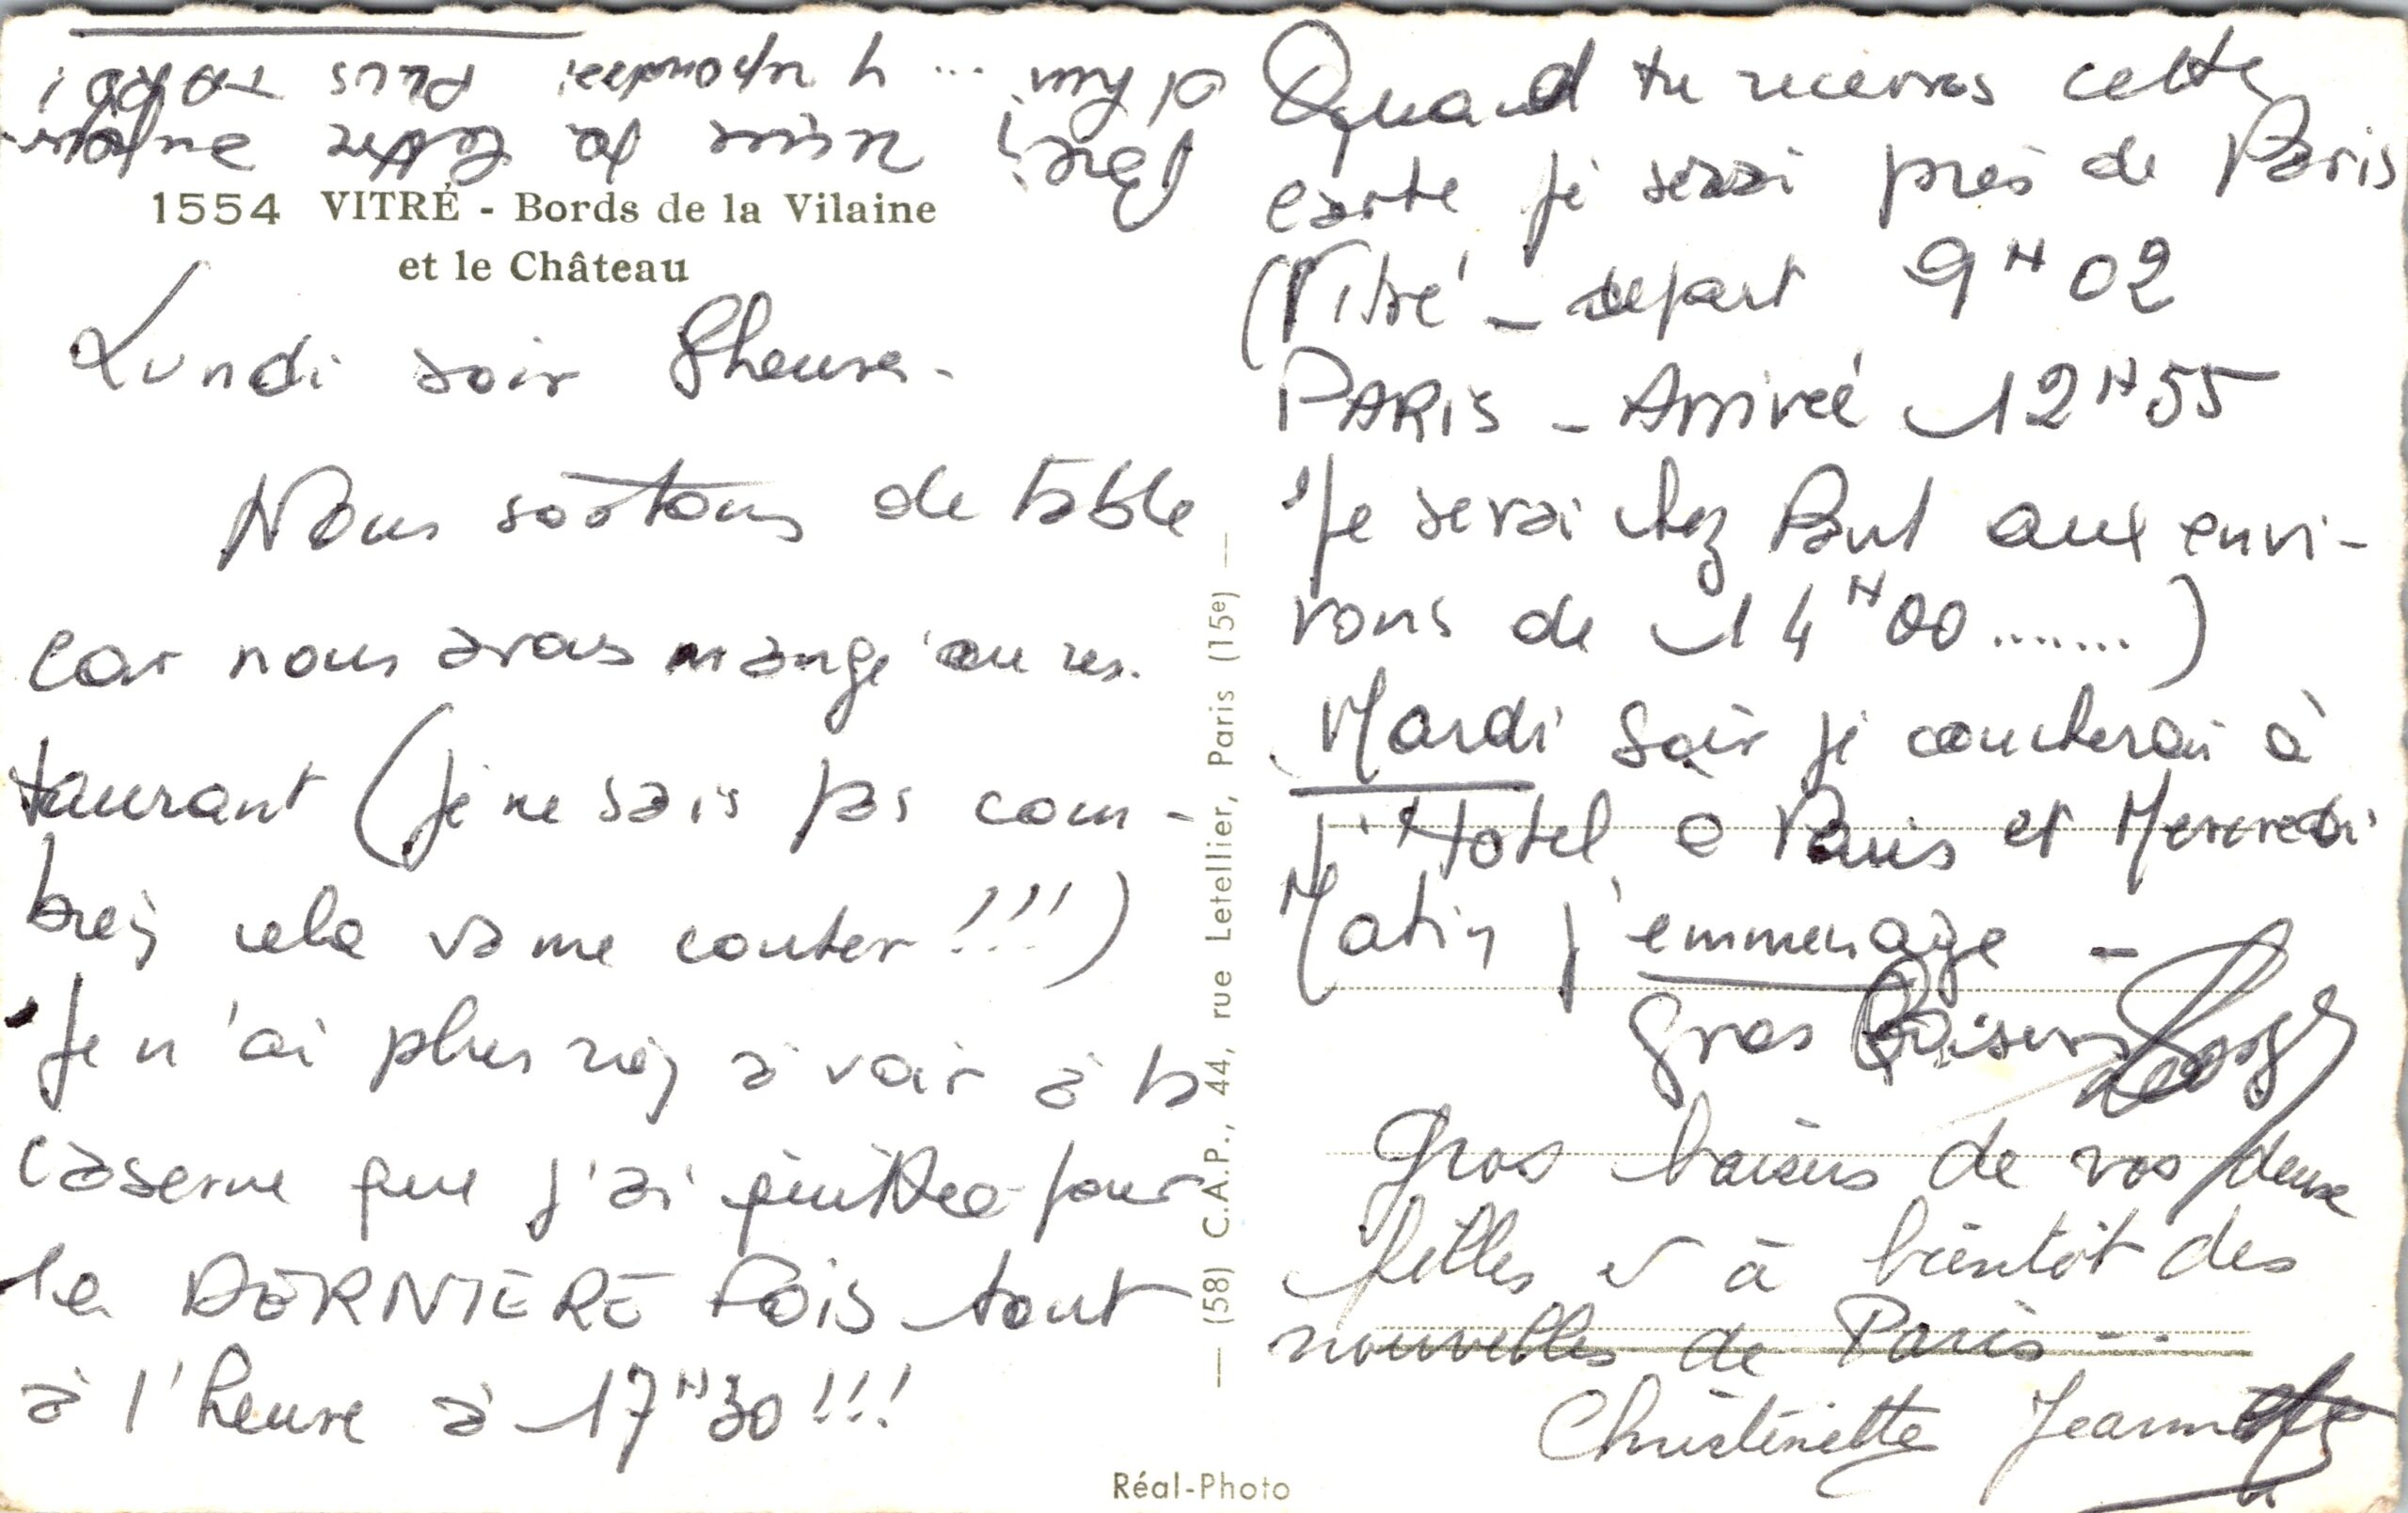 1554 VITRÉ - Bords de la Vilaine
et le Château
Lundi soir 8heures -
Nous sortons de table
car nous avons mangé au res-
taurant (je ne sais pas com-
bien cela va me couter !!!)
Je n'ai plus rien à voir à la
caserne que j'ai quittée pour
la DERNIÈRE Fois tout
à l'heure à 17H30 !!!
— (58) C.A.P., 44, rue Letellier, Paris (15e) —
Réal-Photo
Quand tu recevras cette
carte je serai près de Paris
(Vitré - depart 9H02
PARIS - Arrivée 12H55
Je serai chez Paul aux envi-
rons de 14H00 .......)
Mardi Soir je coucherai à
l'Hotel a Paris et Mercredi
Matin j'emmenage -
Gros Baisers
Gros baisers de vos deux
filles et à bientôt des
nouvelles de Paris...
Christinette Jeannette
reçue la lettre
... y repondrai PLUS TARD!